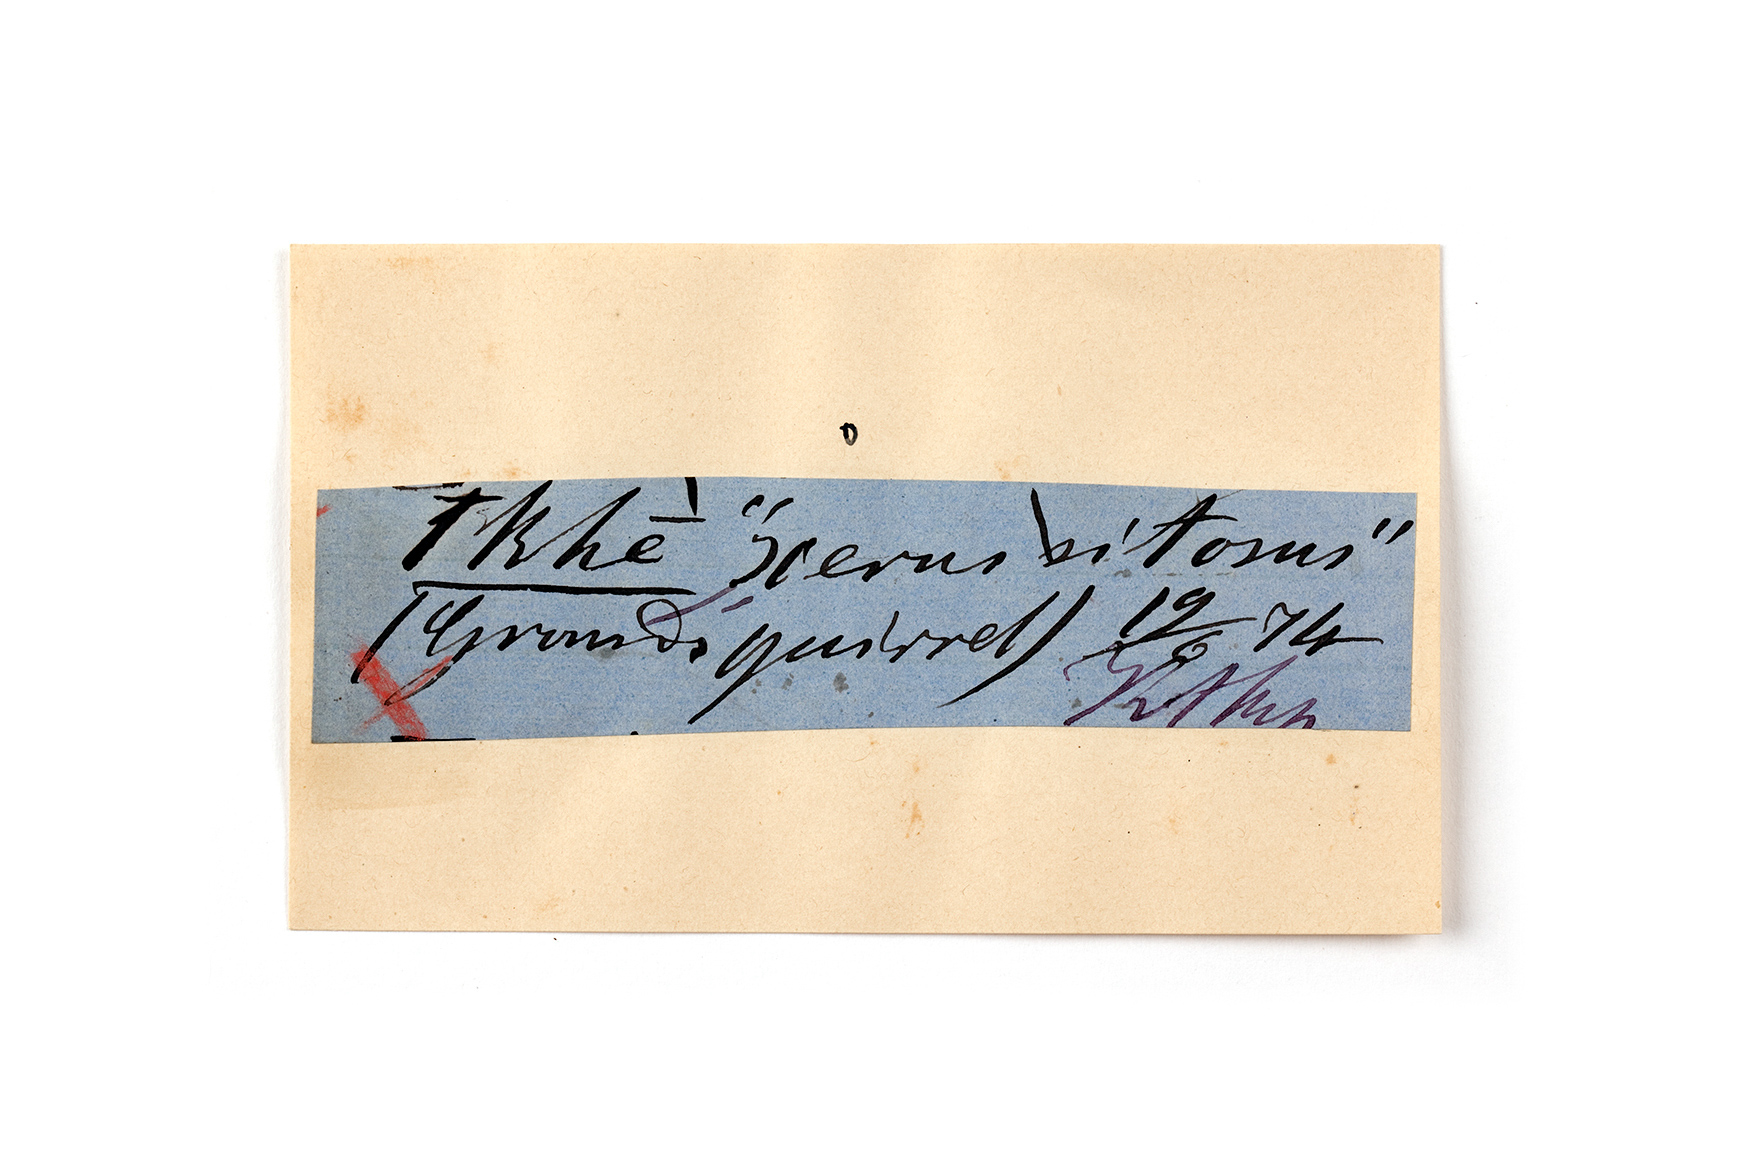 0
Tkhē "Xerus sitosus"
(Ground Squirrel) 19/6 74